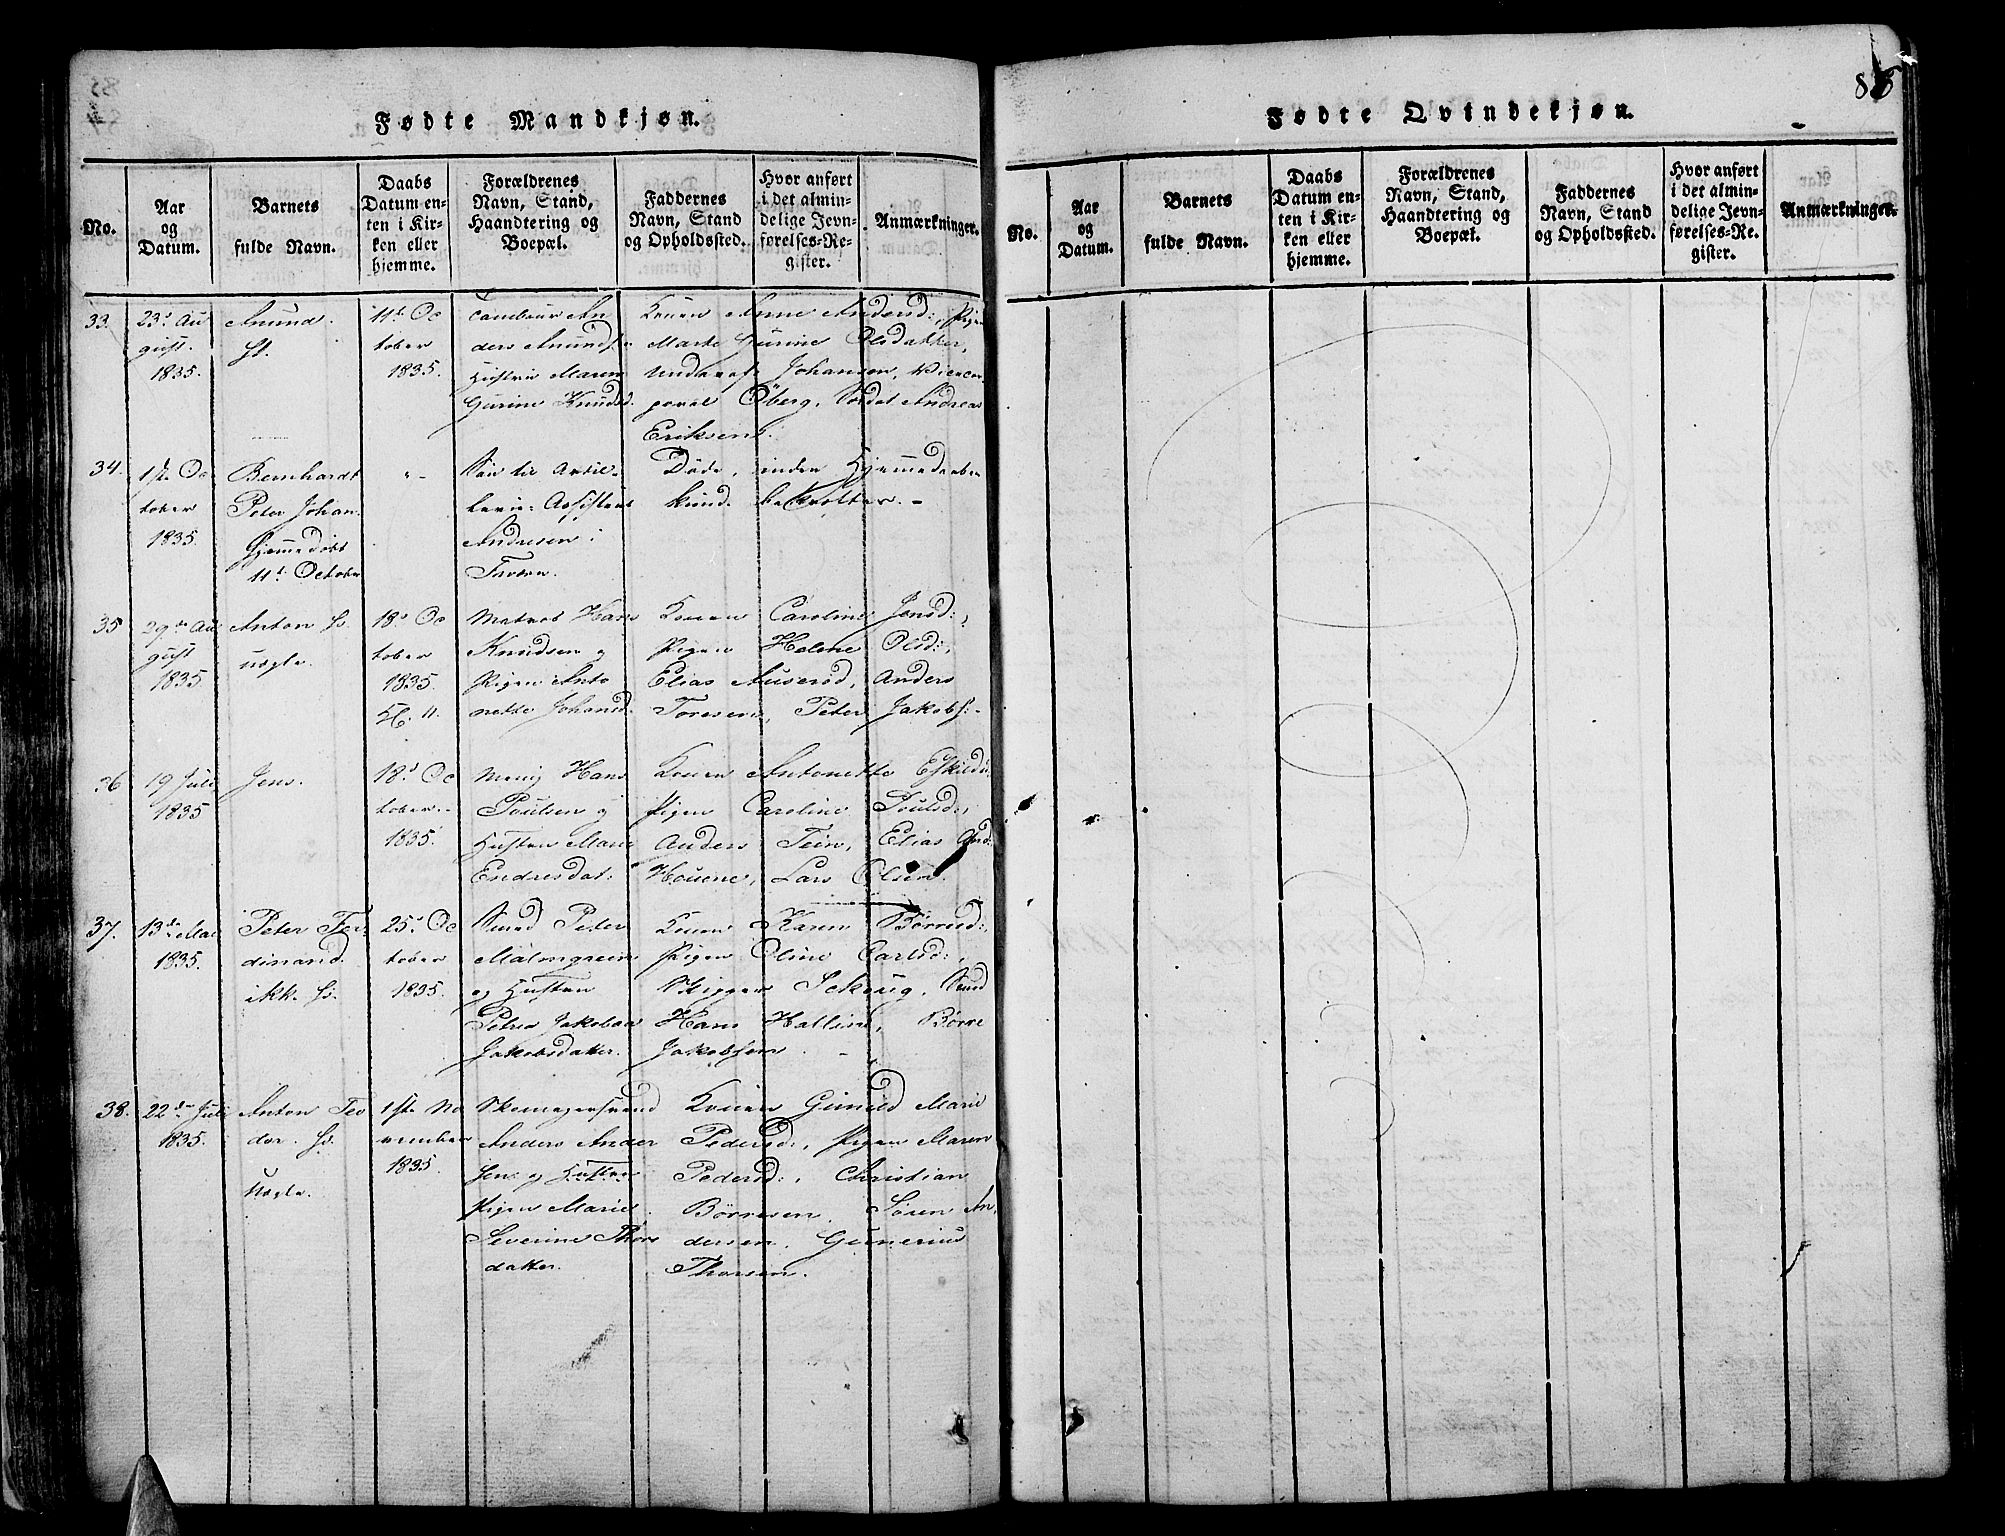 Fødte Mandkjøn.
No.
Aar
og
Datum.
Barnets
fulde Navn.
Daabs
Datum en-
ten i Kir-
ken eller
hjemme.
Forældrenes
Navn, Stand,
Haandtering og
Boepæl.
Faddernes
Navn, Stand
og Opholdssted.
Hvor anført
i det almin-
delige Jevn-
førelses-Re-
gister.
Anmærkninger.
33.
23d Au
gust.
1835.
Anund.
11te Oc
tober
1835.
Tambour An
ders Anunds
Hustrue Maren
Gurine Knudsd.
Konen Anne Andersd:, Pigen
Marte Gurine Olsdatter,
Underof Johansen,
poral Öberg, Soldat Andreas
Eriksen.
34.
1ste Oc
tober
1835.
Bernhardt
Peter Johan.
Hjemmedöbt
11d October
Sön til Artil-
lerie-Assistent
Andresen i
Tavern.
Döde, inden Hjemmedaaben
kund bekræftes. -
35
29de Au
gust
1835
Anton
uægte.
18d Oc
tober
1835.
Matros Hans
Knudsen og
Pigen Anto
nette Johansd.
Konen Caroline Jensd:,
Pigen Helene Olsd:,
Elias Anders
Toresen, Peter Jakobs:-
36
19 Juli
1835
Jens.
18d Oc
tober
1835.
Menig Hans
Poulsen og
Hustru Maria
Endresdat:
Konen Antonette Eskilds:
Pigen Caroline Poulsd:,
Anders Tein, Elias And:
Houene, Lars Olsen.
37.
13de Mai
1835.
Peter Fer-
dinand
ikke
25d Oc
tober
1835.
Smed Peder
Malmgreen
og Hustru
Petrea Jakobea
Jakobsdatter.
Konen Karen Börresd:
Pigen Oline Carlsd:,
Skipper Smed
Hans Halline, Börre
Jakobsen.
38.
22de Juli
1835.
Anton Teo
dor.
Uægte.
1ste No
vember
1835
Skomagersvend
Anders Ander
sen og
Pigen Marie
Severine Thors
datter.
Konen Gunild Marie
Pedersd:, Pigen Maren
Pedersd:, Christian
Börresen, Sören An
dersen, Gunerius
Thorsen.
Fødte Qvindekjøn.
No.
Aar
og
Datum.
Barnets
fulde Navn.
Daabs
Datum en-
ten i Kir-
ken eller
hjemme.
Forældrenes
Navn, Stand,
Haandtering og
Boepæl.
Faddernes
Navn, Stand
og Opholdssted.
Hvor anført
i det almin-
delige Jevn-
førelses-Re-
gister.
Anmærkninger.